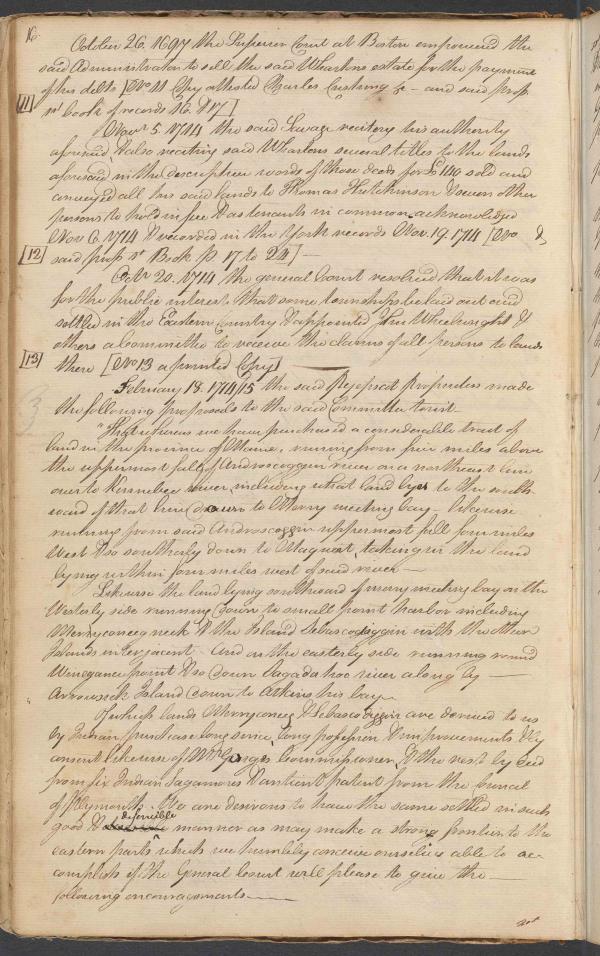 16
October 26. 1697 the Superior Court at Boston empowered the
said Administrator to sell the said Whartons estate for the payment
of his debts [No 11 Copy attested Charles Cushing &c - and said prop.
11
rs book of records 16. & 17]
Novr 5 1714 the said Savage reciting his authority
aforesaid, & also reciting said Whartons several titles to the lands
aforesaid in the descriptive words of those deeds for £140 sold and
conveyed all his said lands to Thomas Hutchinson & seven other
persons to hold in fee & as tenants in common, acknowledged
Nov 6. 1714 & recorded in the York records Nov. 19. 1714 [No &
12
said prop rs Book p 17 to 24] —
Octr 20. 1714 the general Court resolved that it was
for the public interest that some townships be laid out and
settled in the Eastern Country & appointed John Wheelwright &
others a Committee to receive the claims of all persons to lands
13
there [No 13 a printed Copy]
February 18. 1714/15 the said Pejepscot Proprietors made
the following proposals to the said Committee to wit
"That whereas we have purchased a considerable tract of
land in the province of Maine, running from five miles above
the uppermost falls of Androscoggin river on a northeast line
over to Kennebec river, including what land lyes to the south
ward of that line down to Merry meeting bay - likewise
running from said Androscoggin uppermost fall four miles
West & so southerly down to Maquoit, taking in the land
lying within four miles west of said river —
Likewise the land lying southward of merry meeting bay on the
Westerly side running down to small point harbor including
Merryconeeg neck & the Island Sebascodeggin with the other
Islands interjacent - And on the easterly side running round
Winegance point & so down Sagadahoc river along by —
Arrowsick Island down to Atkins his bay —
Of which lands Merryconeeg & Sebascodiggin are derived to us
by Indian purchase long since, long possession & improvements & by
consent likewise of Mr Gorges's Commissioner, & the rest by deed
from six Indian Sagamores & antient patent from the Council
of Plymouth. We are desirous to have the same settled in such
defensible
good & manner as may make a strong frontier to the
eastern parts which we humbly conceive ourselves able to ac-
complish if the General Court will please to give the —
following encouragements —